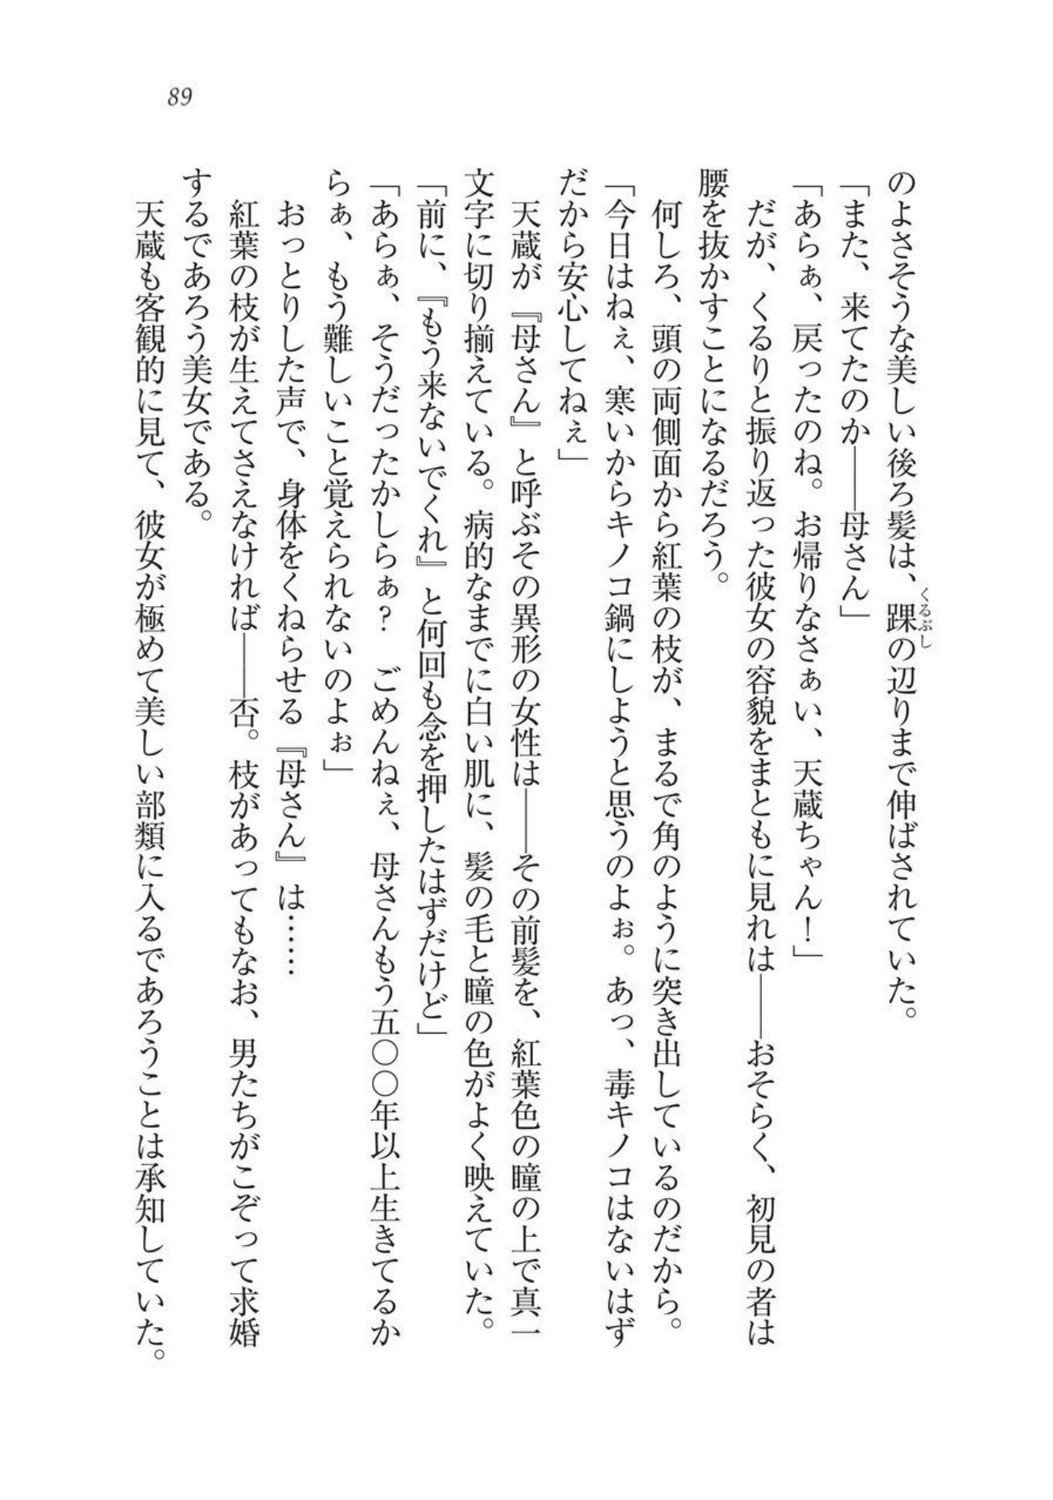 89
のよさそうな美しい後ろ髪は、踝の辺りまで伸ばされていた。
くるぶし
「また、来てたのか――母さん」
「あらぁ、戻ったのね。お帰りなさぁい、天蔵ちゃん！」
だが、くるりと振り返った彼女の容貌をまともに見れは――おそらく、初見の者は
腰を抜かすことになるだろう。
何しろ、頭の両側面から紅葉の枝が、まるで角のように突き出しているのだから。
「今日はねぇ、寒いからキノコ鍋にしようと思うのよぉ。あっ、毒キノコはないはず
だから安心してねぇ」
天蔵が『母さん』と呼ぶその異形の女性は――その前髪を、紅葉色の瞳の上で真一
文字に切り揃えている。病的なまでに白い肌に、髪の毛と瞳の色がよく映えていた。
「前に、『もう来ないでくれ』と何回も念を押したはずだけど」
「あらぁ、そうだったかしらぁ？　ごめんねぇ、母さんもう五〇〇年以上生きてるか
らぁ、もう難しいこと覚えられないのよぉ」
おっとりした声で、身体をくねらせる『母さん』は……
紅葉の枝が生えてさえなければ――否。枝があってもなお、男たちがこぞって求婚
するであろう美女である。
天蔵も客観的に見て、彼女が極めて美しい部類に入るであろうことは承知していた。